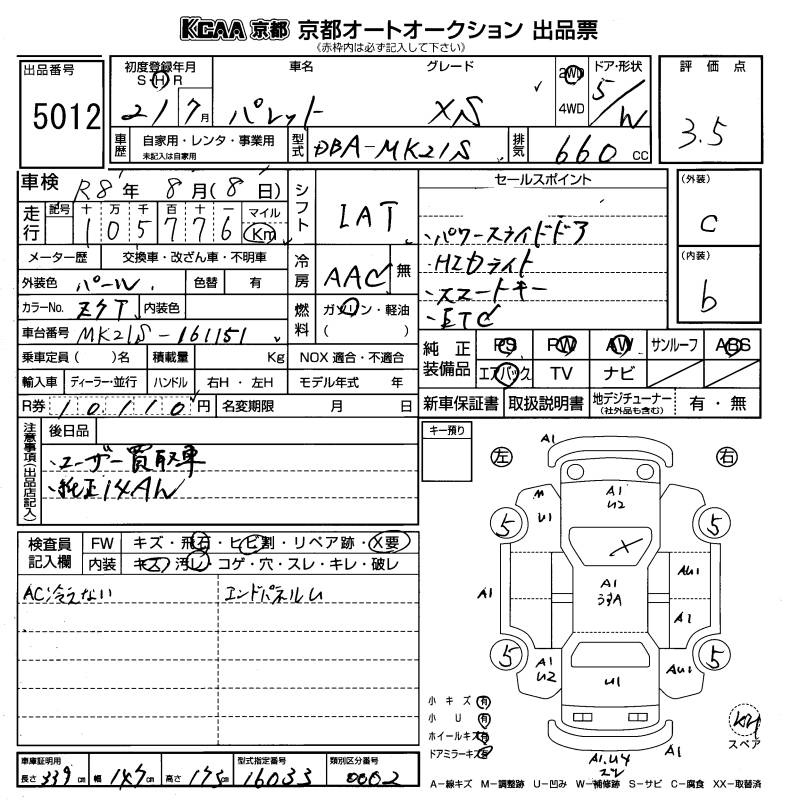 KCAA 京都 京都オートオークション 出品票
(赤枠内は必ず記入して下さい)
出品番号 5012
初度登録年月 S H R 21 7月
車名 パレット
グレード XS
2WD 4WD
ドア・形状 5/W
評価点 3.5
車歴 自家用・レンタ・事業用 未記入は自家用
型式 DBA-MK21S
排気 660 CC
車検 R8年 8月(8日)
シフト IAT
セールスポイント
・パワースライドドア
・HIDライト
・スマートキー
・ETC
(外装) C
(内装) b
走行 記号 十 万 千 百 十 一 マイル Km
105776
メーター歴 交換車・改ざん車・不明車
冷房 AAC 無
外装色 パール
色替 有
カラーNo. ZST 内装色
燃料 ガソリン・軽油 ( )
車台番号 MK21S-161151
乗車定員 ( )名 積載量 Kg NOX 適合・不適合
輸入車 ディーラー・並行 ハンドル 右H・左H モデル年式 年
R券 10110円 名変期限 月 日
純正装備品 PS PW AW サンルーフ ABS
エアバック TV ナビ
新車保証書 取扱説明書 地デジチューナー (社外品も含む) 有・無
注意事項(出品店記入) 後日品
・ユーザー買取車
・純正14AW
キー預り
検査員記入欄 FW キズ・飛石・ヒビ割・リペア跡・X要
内装 キズ・汚レ・コゲ・穴・スレ・キレ・破レ
AC冷えない エンドパネルU
左 右
A1
A1
U2
U1
5 5
X
A1
A1
うすA
AU1
A1
5 5
A1
U2
U1
AU1
小キズ 有
小U 有
ホイールキズ 有
ドアミラーキズ
A1.U4
A1
スペア
車庫証明用 長さ 339cm 幅 147cm 高さ 175cm
型式指定番号 16033
類別区分番号 0002
A―線キズ M―調整跡 U―凹み W―補修跡 S―サビ C―腐食 XX―取替済